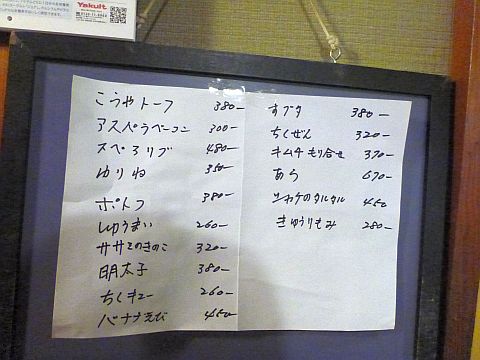 Yakult
こうやトーフ 380-
アスペラベーコン 300-
スペアリブ 480-
ゆりね 350-
ポトフ 380-
しゅうまい 260-
ササミのきのこ 320-
明太子 380-
ちくキュー 260-
バナナえび 450-
すブタ 380-
ちくぜん 320-
キムチもり合せ 370-
あら 670-
シャケのタルタル 450-
きゅうりもみ 280-